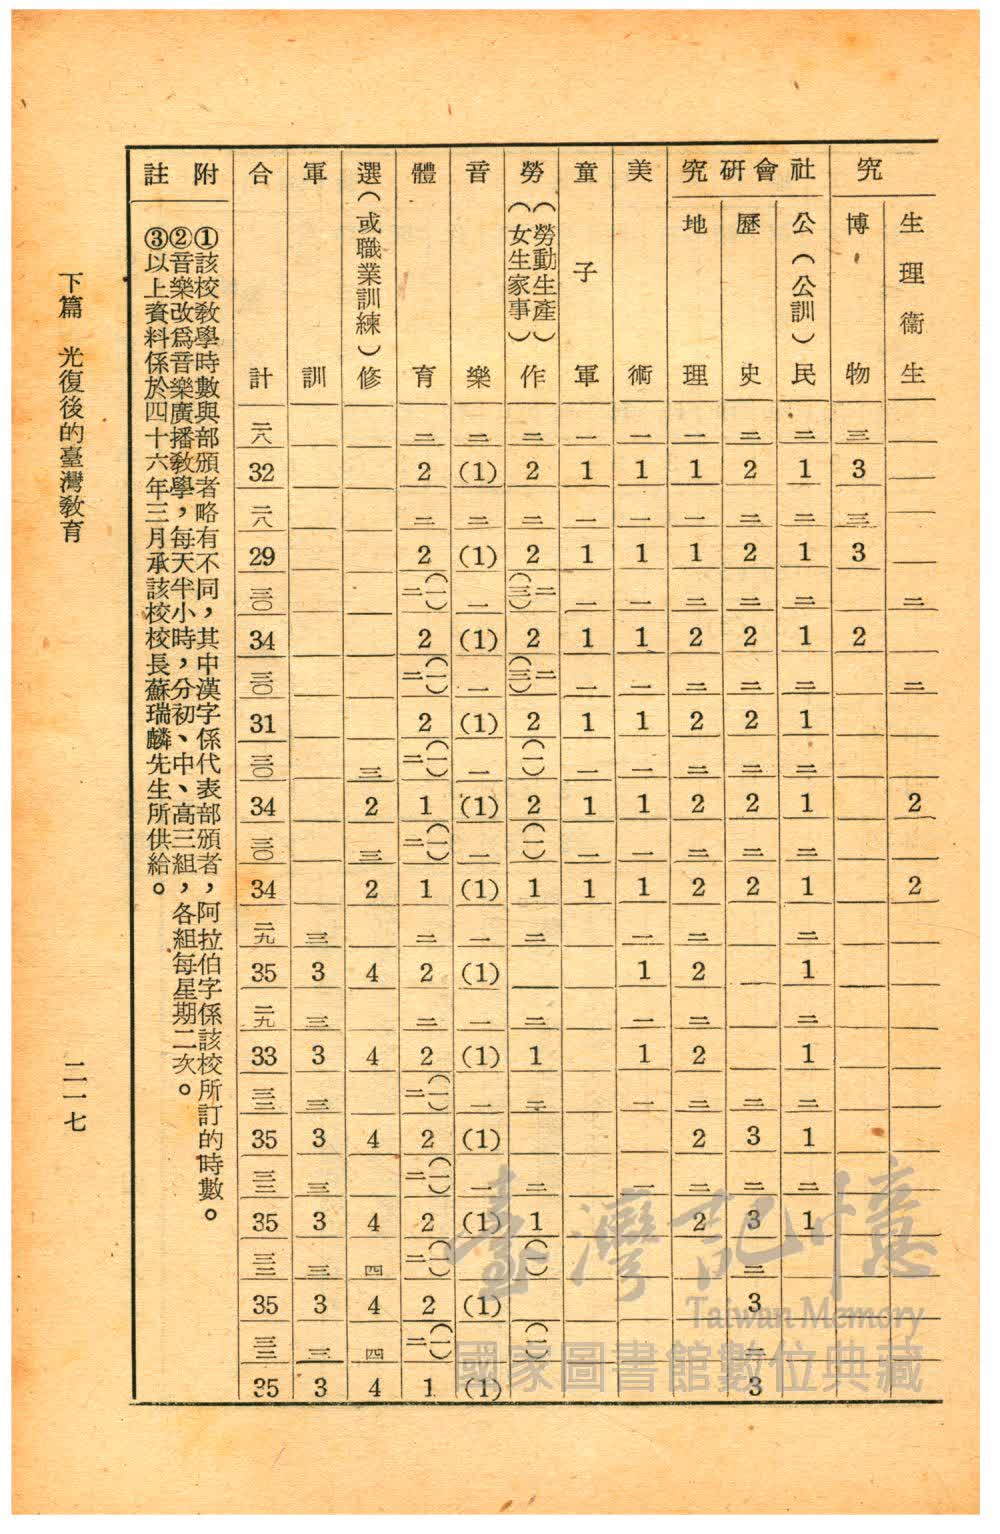 究
生理衛生 二 二 2 2
博物 三 3 三 3 2
社會研究
公(公訓)民 二 1 二 1 二 1 二 1 二 1 二 1 二 1 二 1 二 1 二 1
歷史 二 2 二 2 二 2 二 2 二 2 二 2 二 3 二 3 二 3 二 3
地理 一 1 一 1 二 2 二 2 二 2 二 2 二 2 二 2 二 2 二 2
美術 一 1 一 1 一 1 一 1 一 1 一 1 一 1 一 1 一 一
童子軍 一 1 一 1 一 1 一 1 1 1
勞(勞動生產)(女生家事)作 二 2 二 2 二(三) 2 二(三) 2 (一) 2 (一) 1 二 二 1 二 二 1 (一) (一)
音樂 二 (1) 二 (1) 一 (1) 一 (1) 一 (1) 一 (1) 一 (1) 一 (1) 一 (1) 一 (1) (1) (1)
體育 二 2 二 2 二(一) 2 二(一) 2 二(一) 1 二(一) 1 二 2 二 2 二(一) 2 二(一) 2 二(一) 2 二(一) 1
選(或職業訓練)修 三 2 三 2 4 4 4 4 四 4 四 4
軍訓 三 3 三 3 三 3 三 3 三 3 三 3
合計 二八 32 二八 29 三〇 34 三〇 31 三〇 34 三〇 34 二九 35 二九 33 三三 35 三三 35 三三 35 三三 35
附註
①該校教學時數與部頒者略有不同，其中漢字係代表部頒者，阿拉伯字係該校所訂的時數。
②音樂改爲音樂廣播教學，每天半小時，分初、中、高三組，各組每星期二次。
③以上資料係於四十六年三月承該校校長蘇瑞麟先生所供給。
下篇 光復後的臺灣教育
二一七
臺灣記憶
Taiwan Memory
國家圖書館數位典藏